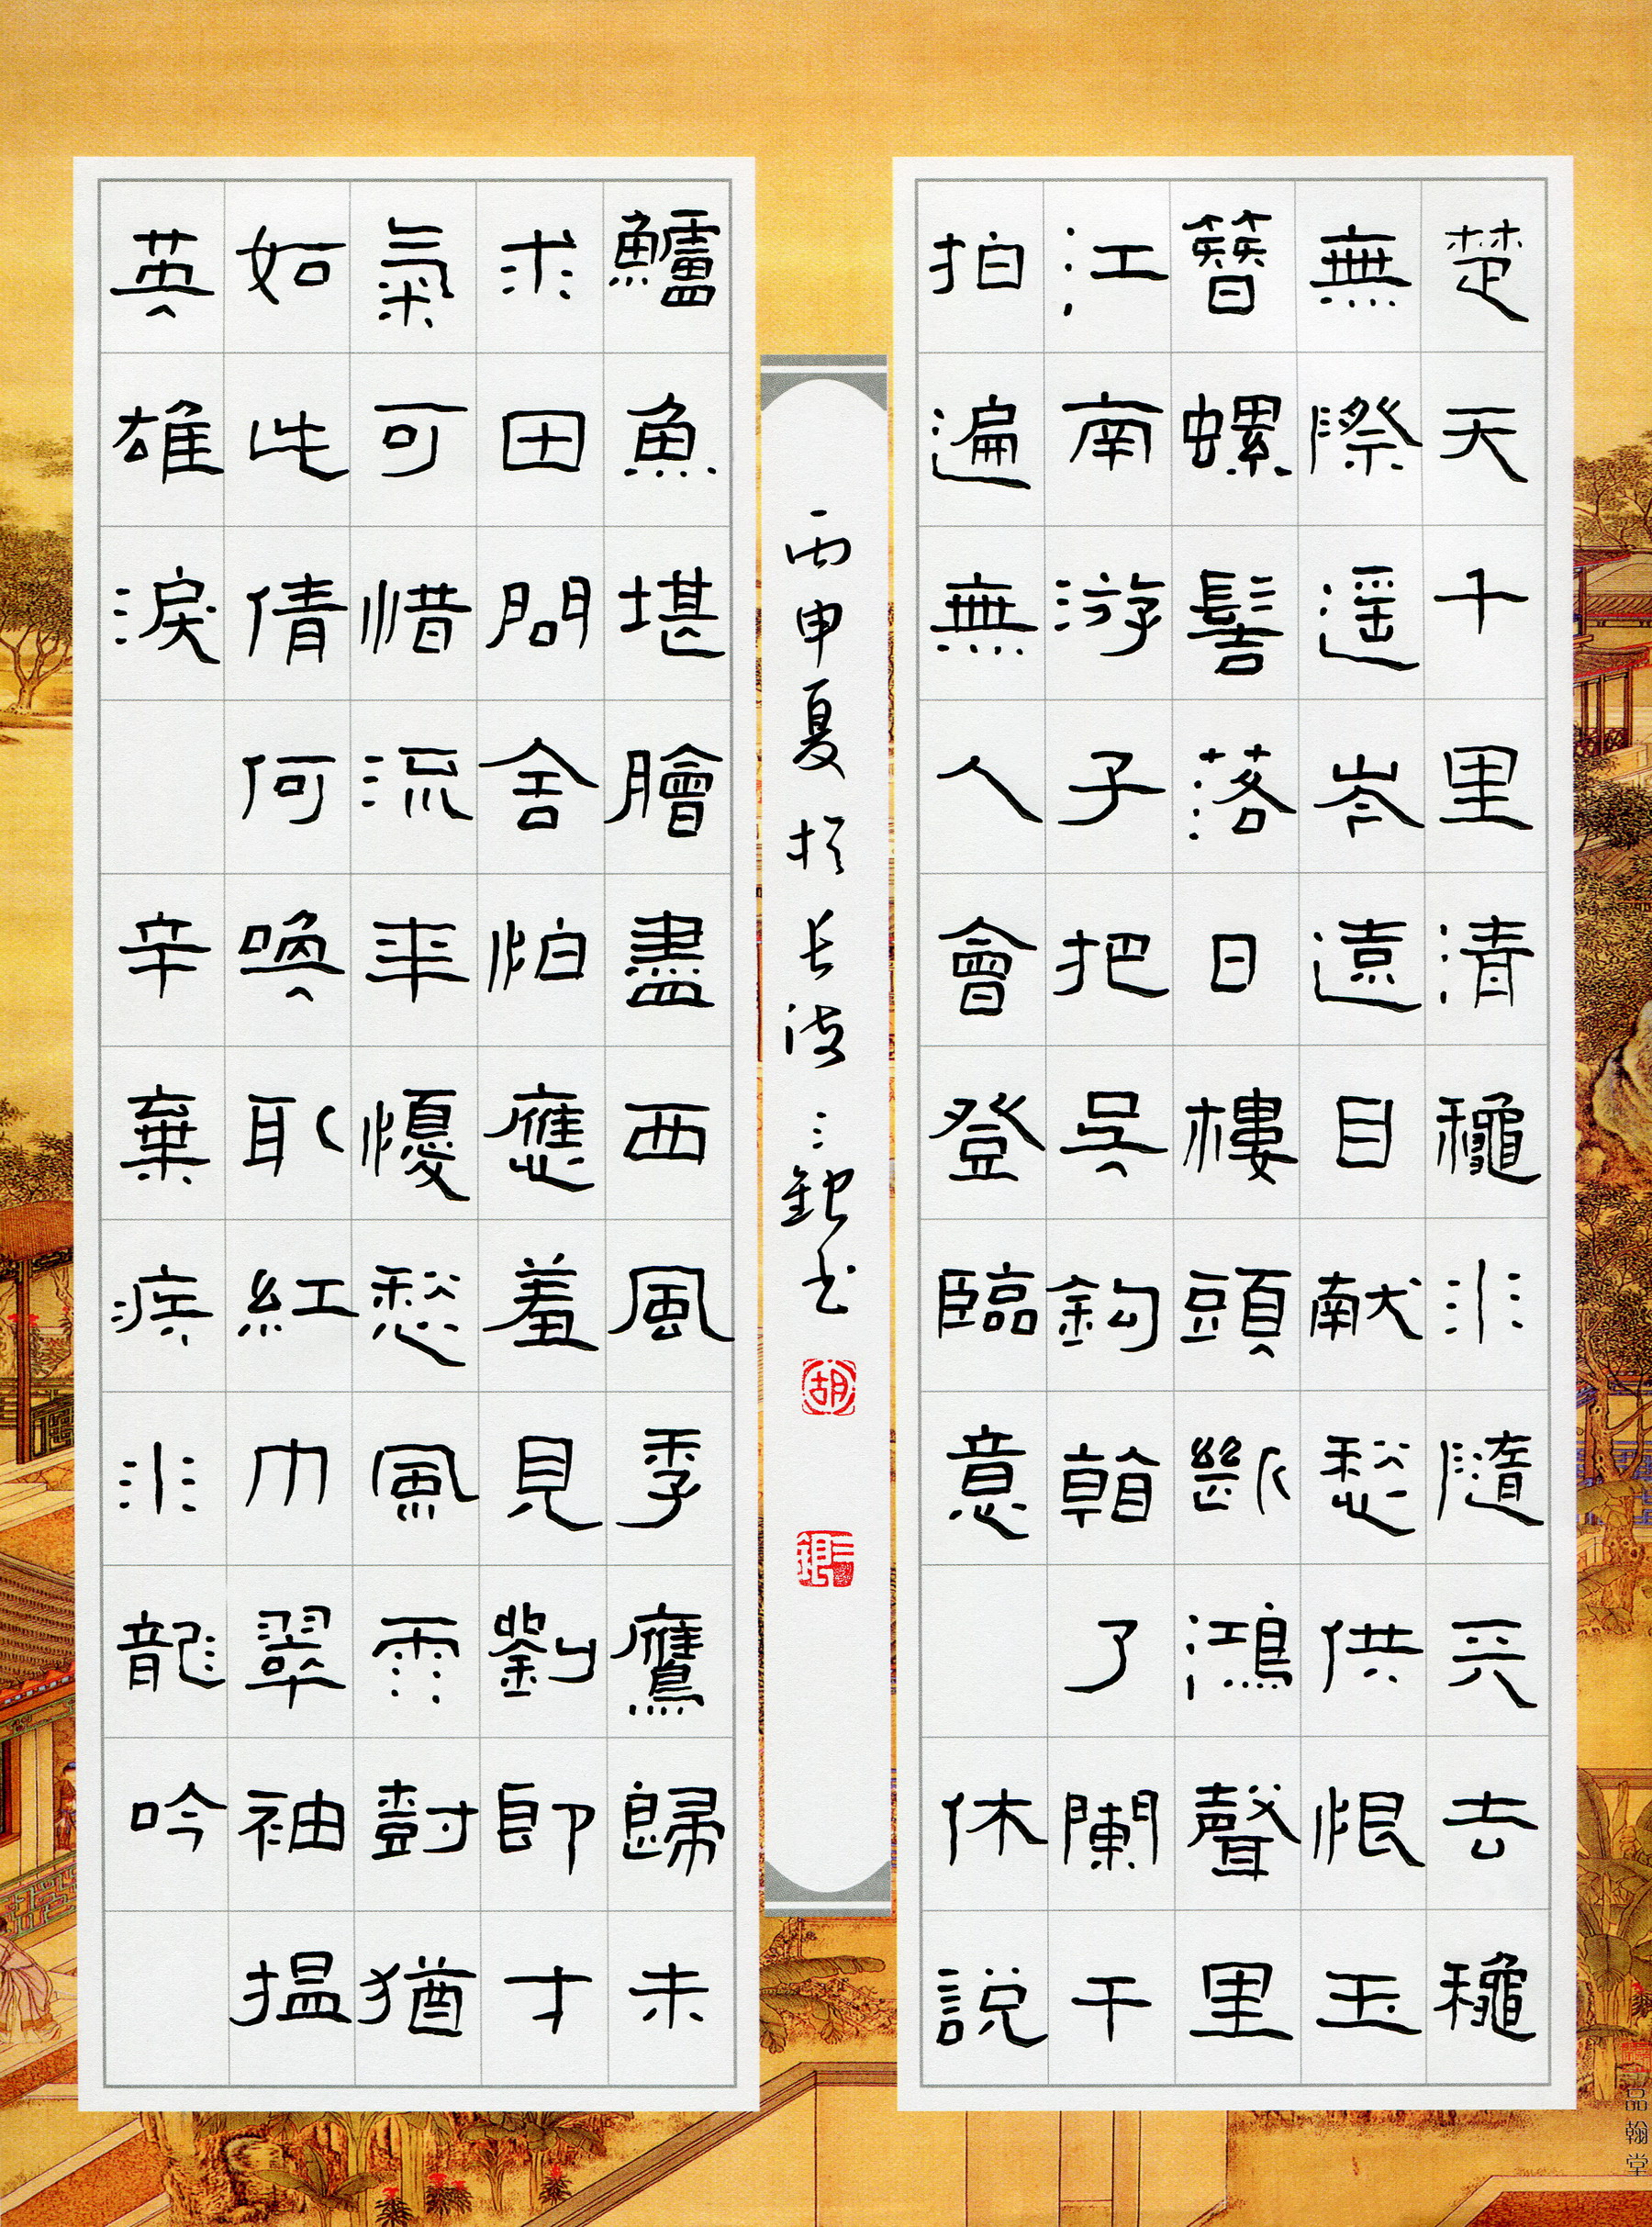 楚天千里清龝水隨天去龝
無際遥岑遠目献愁供恨玉
簪螺髻落日樓頭斷鴻聲里
江南游子把吳鉤看了闌干
拍遍無人會登臨意 休説
鱸魚堪膾盡西風季鷹歸未
求田問舍怕應羞見劉郎才
氣可惜流年憂愁風雨樹猶
如此倩何喚取紅巾翠袖揾
英雄淚 辛棄疾水龍吟
丙申夏於长三銀书
胡
三銀
品翰堂